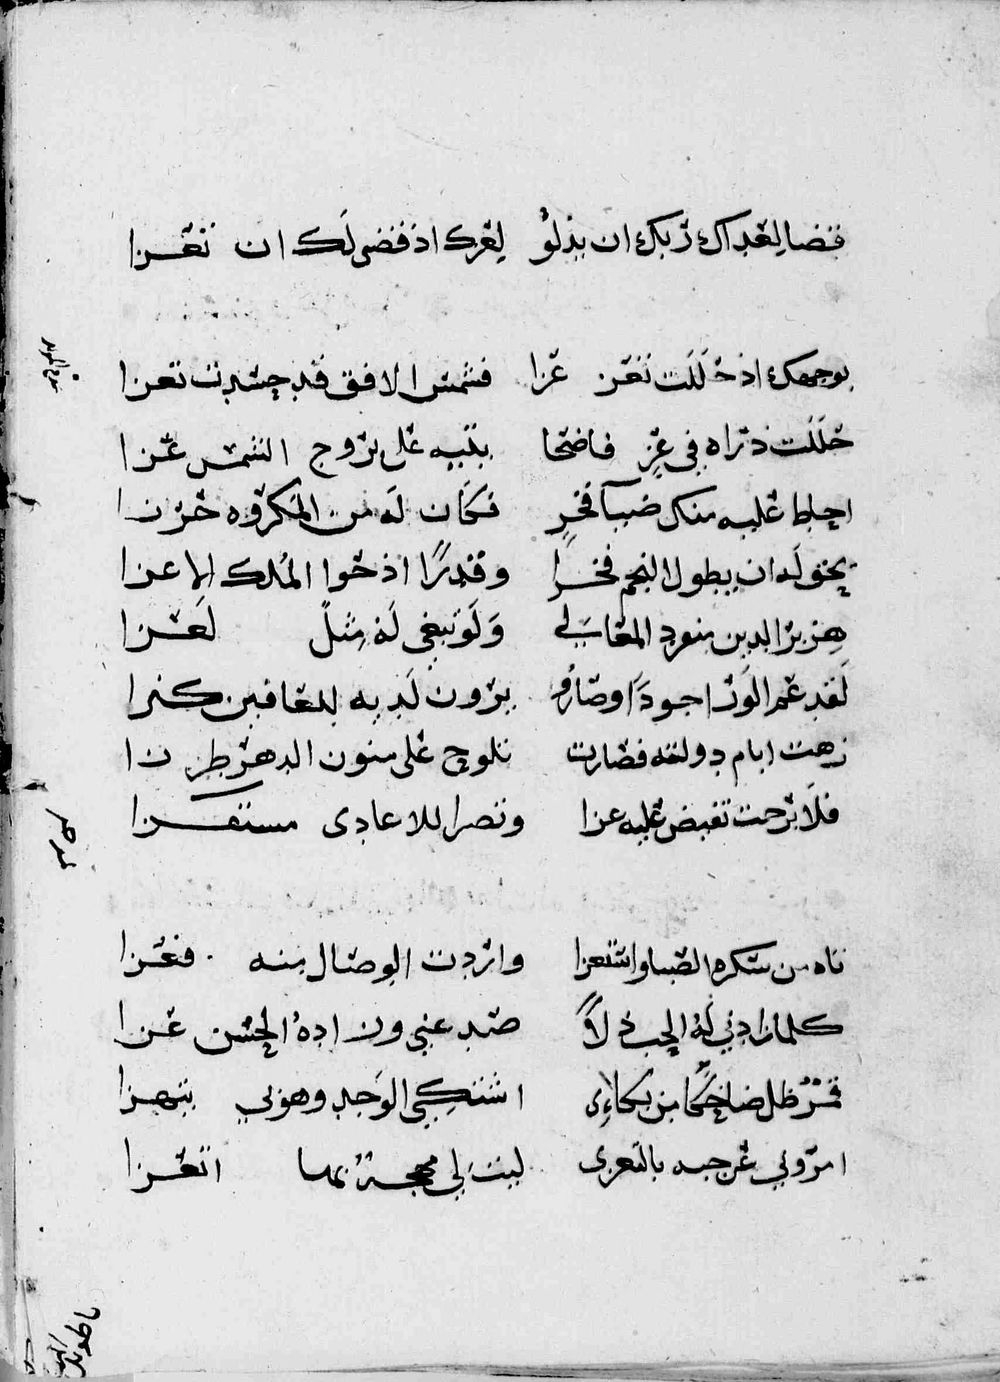 قضا لعداك ربك ان يذلو لعزك اذ قضى لك ان تعزا
بوجهك اذ حللت تعز عزا فشمس الافق قد حسدت تعزا
حللت ذراه في عز فاضحا يتيه على بروج الشمس عزا
احاط عليه منك ضيآ فخر فكان له من المكروه حرزا
يحق له ان يطول النجم فخرا وقدرًا اذ حوا الملك الاعزا
هزبر الدين منعرد المعالي ولو تبغي له مثل لعزا
لقد عم الورا جودًا وصارو يرون لديه للعافين كنزا
زهت ايام دولته فصارت تلوح على متون الدهر طرزا
فلا برحت تفيض عليه عزا ونصرا للاعادي مستفزا
تاه من سكره الصبا واستعزا واردت الوصال منه فعزا
كلما زادني له الحب ذلاً صد عني وزاده الحسن عزا
قمر ظل ضاحكًا من بكاءي اشتكي الوجد وهو بي يتهزا
امروني عن حبه بالتعزي ليت لي مهجة بها اتعزا